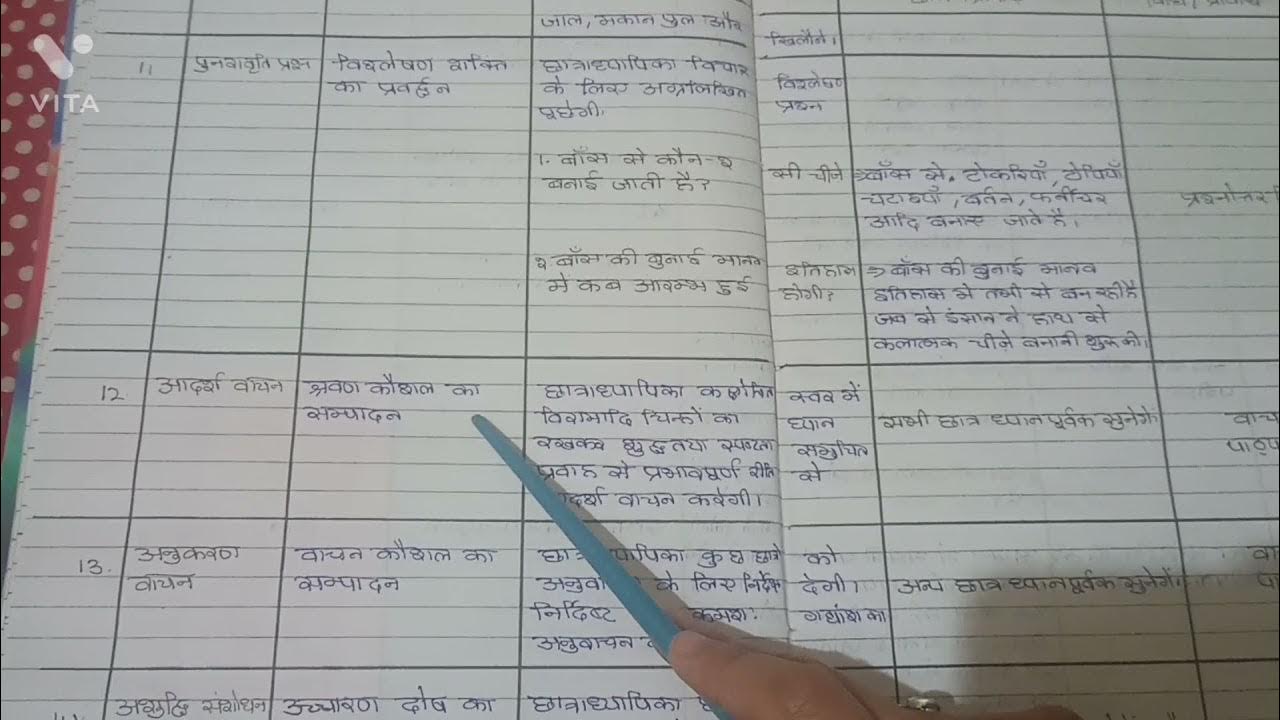 जाल, मकान पुल और
खिलौने।
VITA
11 पुनरावृति प्रश्न विश्लेषण शक्ति छात्राध्यापिका विचार विश्लेषण
का प्रवर्द्धन के लिए अग्रलिखित प्रश्न
पूछेगी।
1. बाँस से कौन-२ सी चीजे ⇒ बाँस से, टोकरियाँ, टोपियाँ
बनाई जाती है? चटाइयाँ, बर्तन, फर्नीचर प्रश्नोत्तर
आदि बनाए जाते है।
२ बाँस की बुनाई मानव इतिहास ⇒ बाँस की बुनाई मानव
मे कब आरम्भ हुई होगी? इतिहास मे तभी से चल रही है
जब से इंसान ने हाथ से
कलात्मक चीज़े बनानी शुरू की।
12. आदर्श वाचन श्रवण कौशल का छात्राध्यापिका स्वर में
सम्पादन विरामादि चिन्हों का ध्यान सभी छात्र ध्यानपूर्वक सुनेगें।
रखकर शुद्ध तथा स्पष्टता समुचित
प्रवाह से प्रभावपूर्ण रीति से
वाचन करेगी।
13. अनुकरण वाचन कौशल का कुछ छात्रो को
वाचन सम्पादन के लिए निर्देश देगी। अन्य छात्र ध्यानपूर्वक सुनेगें।
निर्दिष्ट क्रमशः गद्यांश का
अनुवाचन
अशुद्धि संशोधन उच्चारण दोष का छात्राध्यापिका